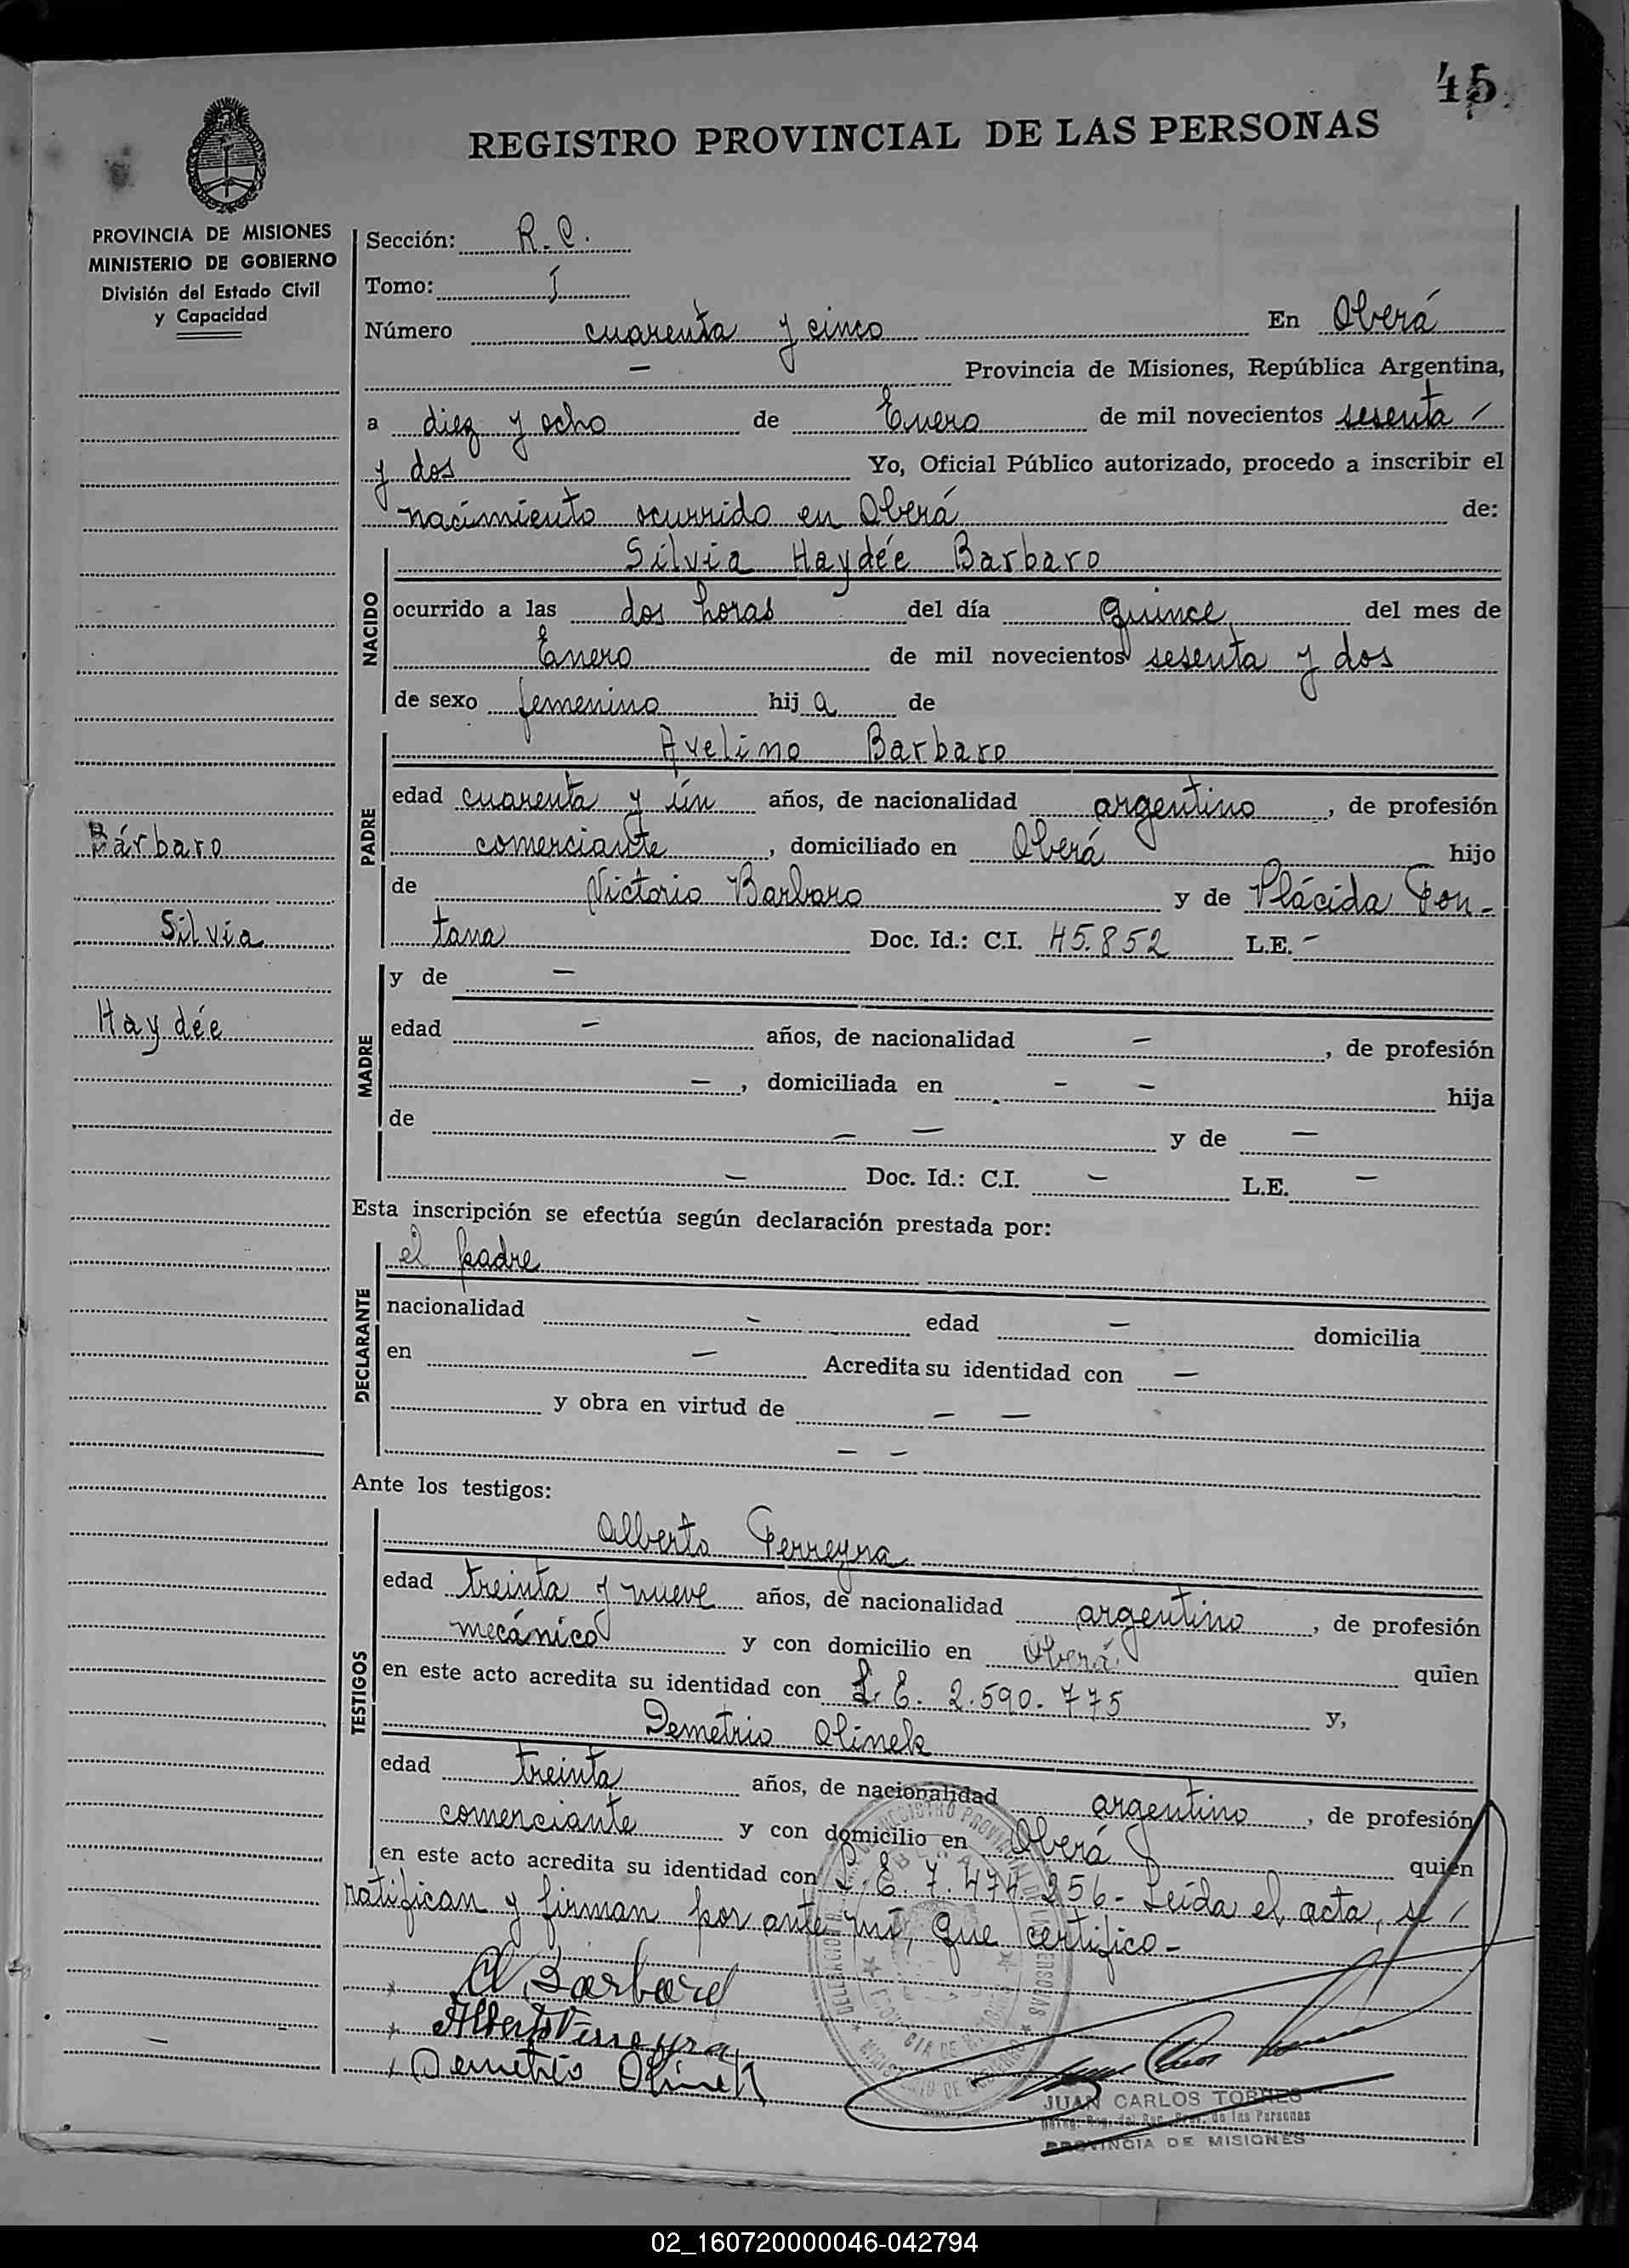 45
REGISTRO PROVINCIAL DE LAS PERSONAS
PROVINCIA DE MISIONES
MINISTERIO DE GOBIERNO
División del Estado Civil
y Capacidad
Bárbaro
Silvia
Haydée
Sección: R. C.
Tomo: I
Número cuarenta y cinco En Oberá
— Provincia de Misiones, República Argentina,
a diez y ocho de Enero de mil novecientos sesenta /
y dos Yo, Oficial Público autorizado, procedo a inscribir el
nacimiento ocurrido en Oberá de:
NACIDO
Silvia Haydée Barbaro
ocurrido a las dos horas del día quince del mes de
Enero de mil novecientos sesenta y dos
de sexo femenino hij a de
PADRE
Avelino Barbaro
edad cuarenta y un años, de nacionalidad argentino, de profesión
comerciante, domiciliado en Oberá hijo
de Victorio Barbaro y de Plácida Fon-
tana Doc. Id.: C.I. 45.852 L.E. —
MADRE
y de —
edad — años, de nacionalidad —, de profesión
—, domiciliada en — — hija
de — — y de —
— Doc. Id.: C.I. — L.E. —
Esta inscripción se efectúa según declaración prestada por:
DECLARANTE
el padre
nacionalidad — edad — domicilia
en — Acredita su identidad con —
y obra en virtud de — —
— —
Ante los testigos:
TESTIGOS
Alberto Ferreyra
edad treinta y nueve años, de nacionalidad argentino, de profesión
mecánico y con domicilio en Oberá quien
en este acto acredita su identidad con L. E. 2.590.775 y,
Demetrio Olinek
edad treinta años, de nacionalidad argentino, de profesión
comerciante y con domicilio en Oberá quien
en este acto acredita su identidad con L. E. 7.474.256- Leída el acta, se /
ratifican y firman por ante mí, que certifico-
A Barbaro
Alberto Ferreyra
Demetrio Olinek
JUAN CARLOS TORRES
PROVINCIA DE MISIONES
02_160720000046-042794